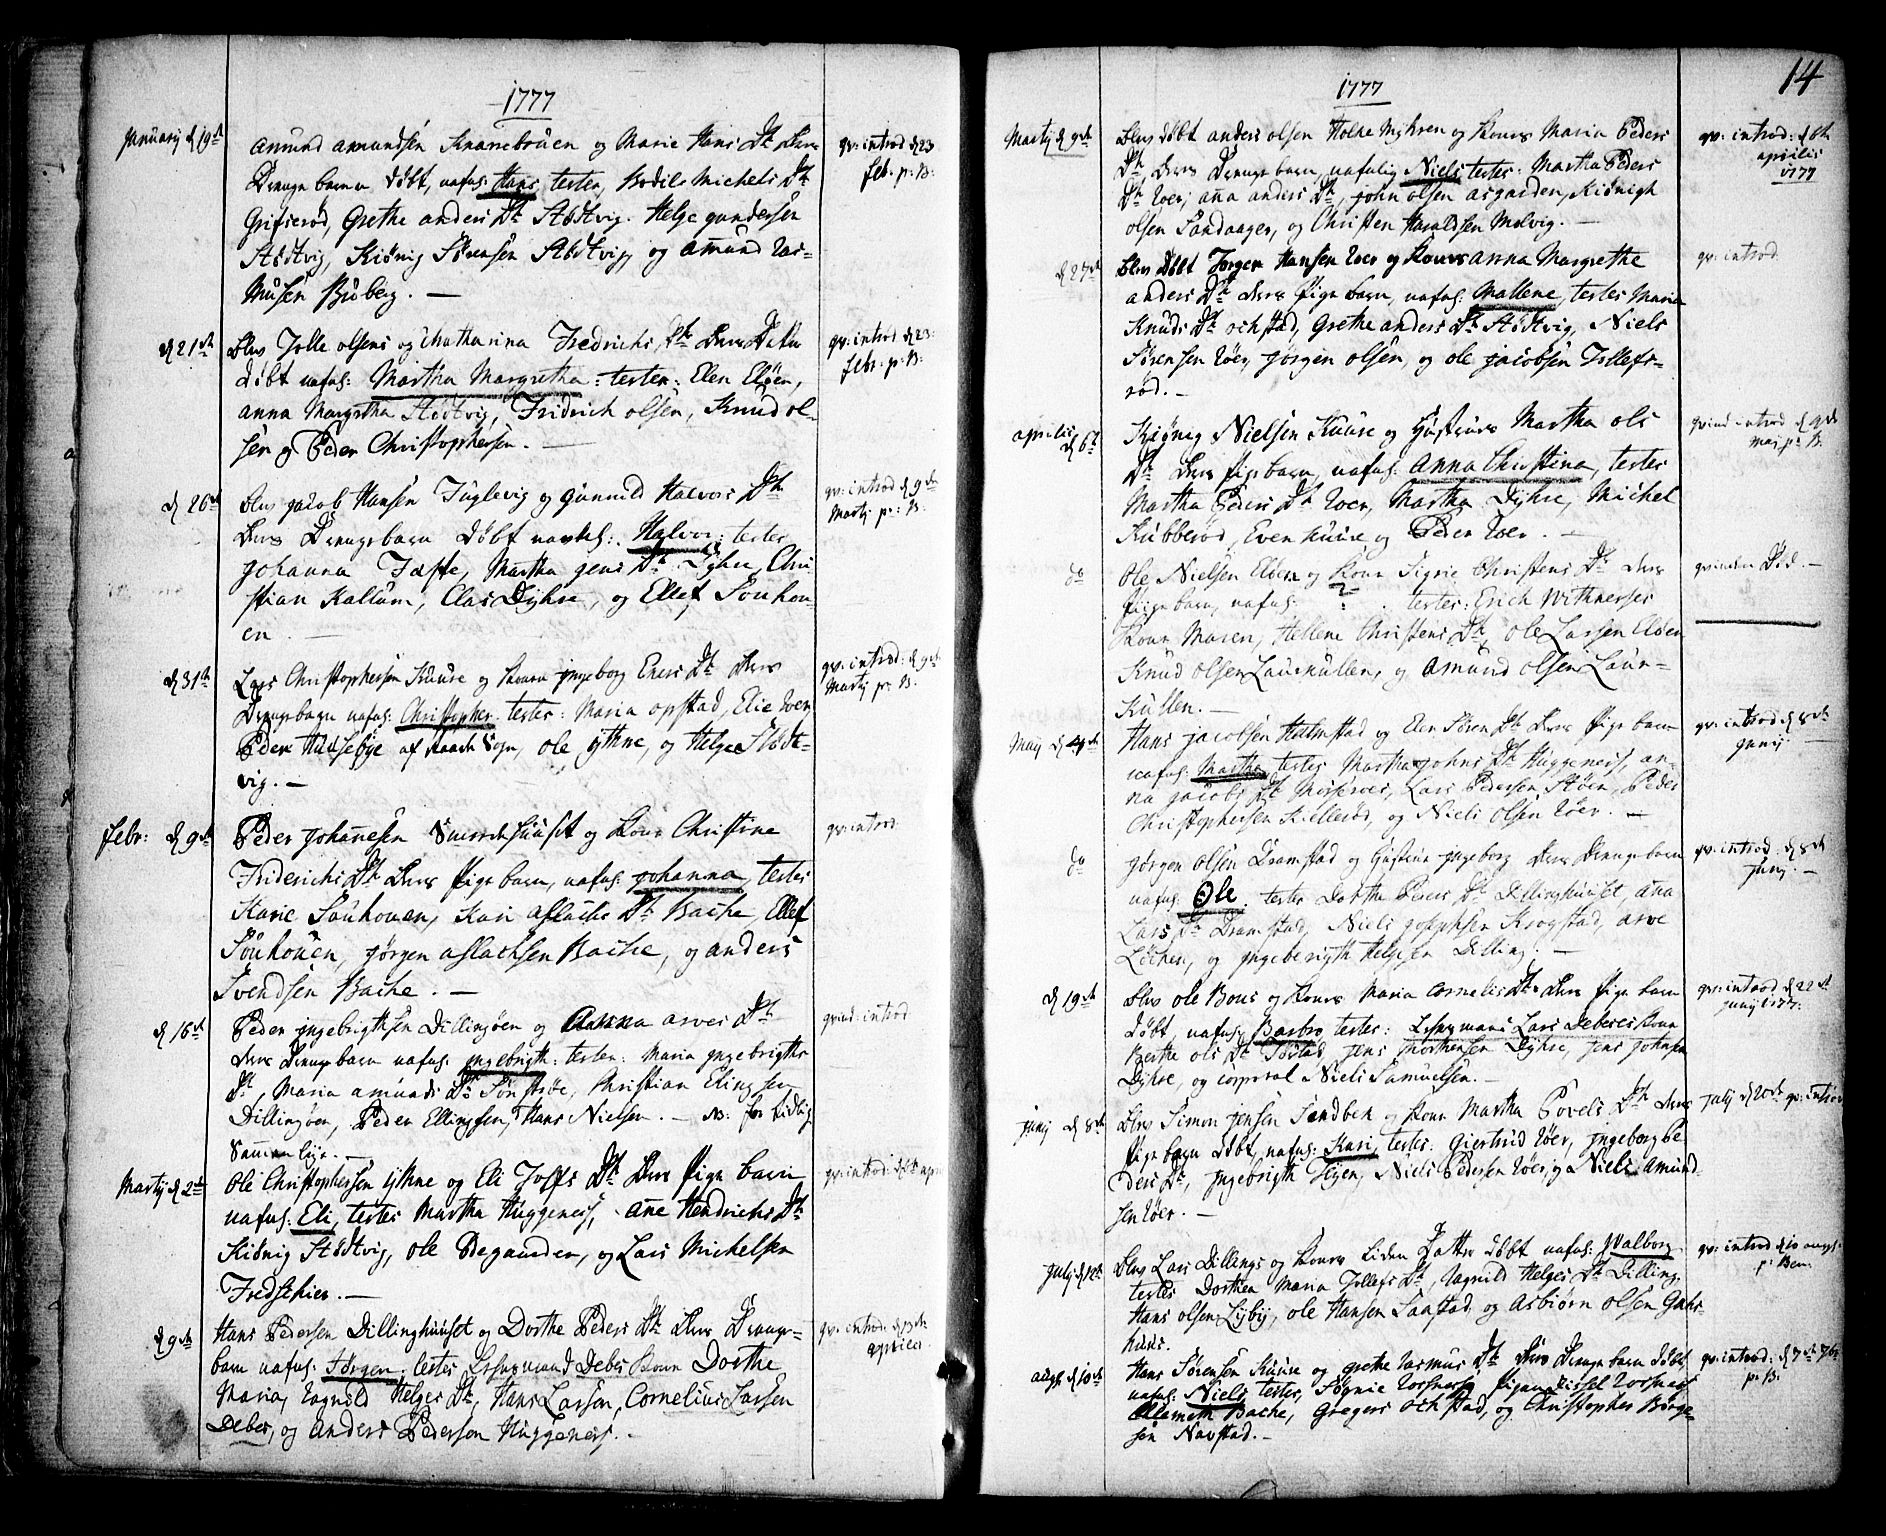 1777
Januarij d 19de
Amund Amundsen Knarebrouen og Marie Hans Dtr Deres
Drengebarn døbt, nafnl: Hans, testes, Bodil Michels Dtr
Grifserød, Grethe Anders Dtr Stødtvig. Helge Gundersen
Stødtvig, Kiønig Sørensen Stødtvig og Amund Ras-
musen Biøberg. —
qv: introd d 23
feb. p: B:
d 21de
Blev Tolle Olsens og Chatharina Fredrichs Dtr Deres Datter
døbt nafnl: Martha Margretha: testes: Elen Eløen,
Anna Margretha Stødtvig, Fridrich Olsen, Knud Ol-
sen og Peder Christophersen. —
qv: introd d 23
febr. p: B.
d 26de
Blev Jacob Hansen Fuglevig og Gunnild Halvors Dtr
Deres Drengebarn døbt nafnl: Halvor: testes
Johanna Jeffe, Martha Jens Dtr Dyhre, Chri-
stian Kallum, Clas Dyhre, og Ellef Souhou-
en. —
qv: introd d 9de
Martij p: B.
d 31te
Lars Christophersen Kuure og Kone Ingeborg Evers Dtr Deres
Drengebarn nafnl: Christopher. testes: Maria Opstad, Elie Roer
Peder Huusebye af Raade Sogn, Ole Ythne, og Helge Stødt-
vig. —
qv: introd: d 9de
Martij p: B.
Febr: d 9de
Peder Johanesen Smördehuuset og Kone Christine
Friderichs Dtr Deres Pigebarn, nafnl: Johanna, testes
Karie Souhouen, Kari Aslachs Dtr Bache, Ellef
Souhouen, Jørgen Aslachsen Bache, og Anders
Svendsen Bache. —
qv: introd.
d 16de
Peder Ingebrigthsen Dillingøen og Anna Arves Dtr
Deres Drengebarn nafnl: Ingebrigth: testes: Maria Ingebrigths
Dtr, Maria Amunds Dtr Sonstrøe, Christian Elingsen
Dillingøen, Peder Ellingsen, Hans Nielsen. — NB: for tidlig
Sammenleye. —
qvind: introd
Martij d 2de
Ole Christophersen Ythne og Eli Tolfs Dtr Deres Pigebarn
nafnl: Eli, testes Martha Huggenes, Ane Hendrichs Dtr
Kiønig Stødtvig, Ole Ødegaarden, og Lars Michelsen
Fredschier. —
qv: introd: d 6te apri
d 9de
Hans Pedersen Dillinghuuset og Dorthe Peders Dtr Deres Drenge-
barn nafnl: Jørgen, testes Lensmand Debes Kone Dorthe
Maria, Ragnild Helges Dtr, Hans Larsen, Cornelius Larsen
Debes, og Anders Pedersen Huggenes. —
qv: introd: d 13de
Aprilis
14
1777
Martij d 9de
Blev døbt Anders Olsen Holte Myhren og Kones Maria Peders
Dtr, Deres Drengebarn, nafnlig Niels testes: Martha Peders
Dtr Roer, Ana Anders Dtr, John Olsen Asgarden, Kiønigh
Olsen Sandaager, og Christen Haraldsen Melvig. —
qv: introd: d 6te
Aprilis
1777
d 27de
Blev døbt Jørgen Hansen Roer og Kones Anna Margrethe
Anders Dtr Deres Pigebarn, nafnl: Mallene, testes Maria
Knuds Dtr Ochstad, Grethe Anders Dtr Stødtvig, Niels
Sørensen Roer, Jørgen Olsen, og Ole Jacobsen Tollefs-
rød. —
qv: introd.
Aprilis d 6te
Kiønig Nielsen Kuure og Hustrues Martha Ols
Dtr Deres Pigebarn, nafnl: Anna Christina, testes
Martha Peders Dtr Roer, Martha Dyhre, Michel
Kubberød, Even Kuure og Peder Roer. —
qvind introd d 9de
Maj p: B.
do
Ole Nielsen Elden og Kone Sigrie Christens Dtr Deres
Pigebarn, nafnl: testes: Erich Withnerses
Kone Maren, Hellene Christens Dtr, Ole Larsen Elden
Knud Olsen Laurkullen, og Amund Olsen Laur-
kullen. —
qvinden Død. —
Maij d 4de
Hans Jacobsen Halmstad og Elen Sören Dtr Deres Pigebarn
nafnl: Martha, testes Martha Johns Dtr Huggenes, An-
na Jacobs Dtr Mosseroes, Lars Pedersen Støen, Peder
Christophersen Kiellerød, og Niels Olsen Roer. —
qv: introd: d 8de
Junij
do
Jørgen Olsen Dramstad og Hustrue Ingeborg Deres Drengebarn
nafnl: Ole. testes Dorthe Peders Dtr Dillinghuuset, Ana
Lars Dtr Dramstad, Niels Josephsen Krogstad, Arve
Löchen, og Ingeberigth Helgesen Dilling. —
qv: introd: d 8de
Junij. —
d 19de
Blev Ole Bous og Kones Maria Cornelis Dtr Deres Pigebarn
døbt, nafnl: Barbro testes: Lensmans Lars Debeses Kone
Berthe Ols Dtr Sørstad, Jens Morthensen Dyhre, Jens Johnsen
Dyhre, og Corporal Niels Samuelsen. —
qv: introd: d 22de
Junij 1777.
Junij d 8de
Blev Simon Jensen Sandbek og Kone Martha Povels Dtr Deres
Pigebarn døbt, nafnl: Kari, testes: Giertrud Roer, Ingeborg Pe-
ders Dtr, Ingebrigth Teyen, Niels Pedersen Roer, og Niels Amund-
sen Roer. —
Julij d 20de qv: introd
Julij d 12te
Blev Lars Dillings og Kones liden Datter døbt nafnl: Walborg
testes Dorthea Maria Tollefs Dtr, Ragnild Helges Dtr Dilling,
Hans Olsen Lyby, Ole Hansen Saastad, og Asbiørn Olsen Gahs-
huus.
qv: introd d 10 Augs:
p: Ben.
Augst d 10de
Hans Sørensen Kuure og Grethe Rasmus Dtr Deres Drengebarn døbt
nafnl: Niels, testes, Sognie Rosness Pigen Sissel Rosness
Elisabeth Bache, Gregers Ochstad, og Christopher Børge-
sen Navstad. —
qv: introd: d 7de 7br
p: B.